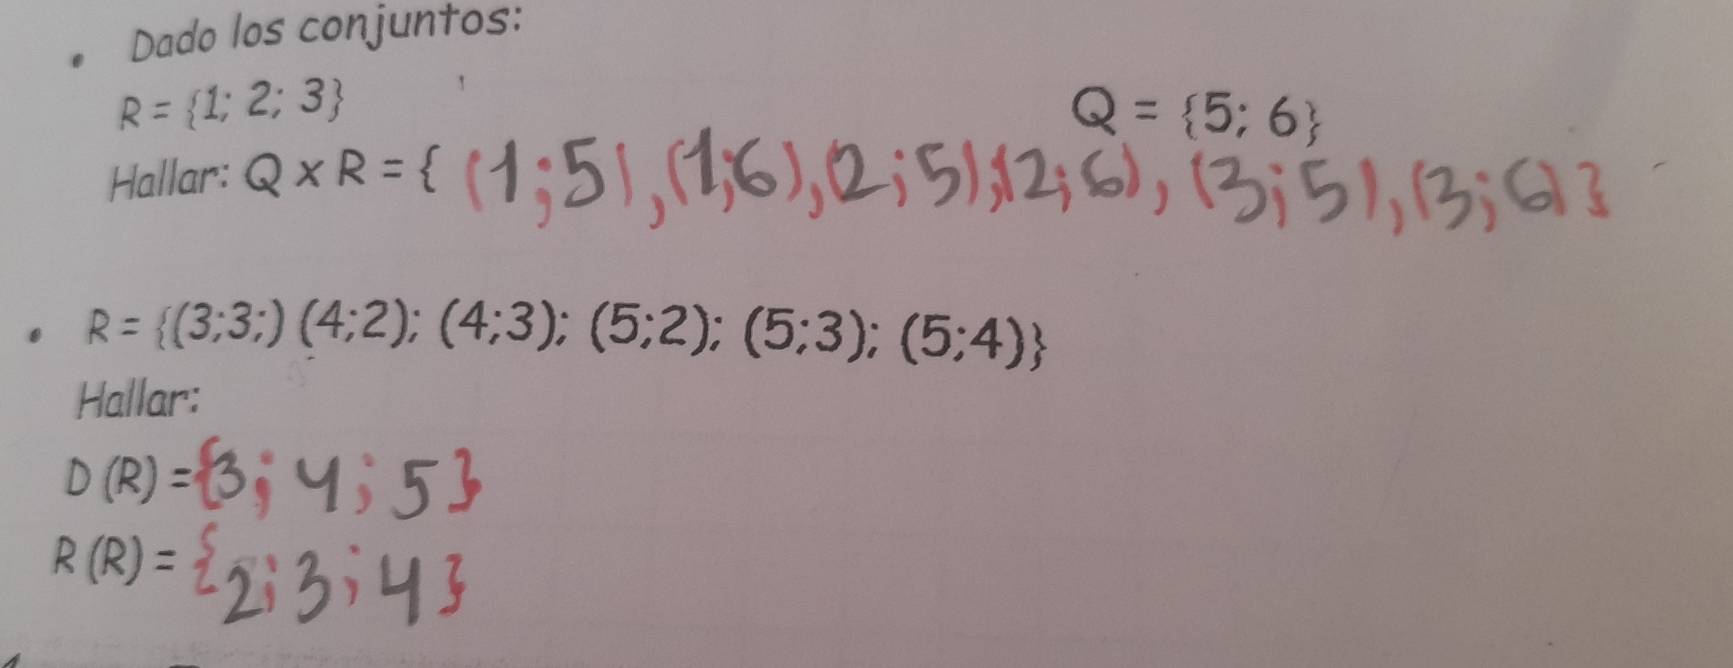 • Dado los conjuntos:
R = {1; 2; 3} Q = {5; 6}
Hallar: Q x R = { (1;5), (1;6), (2;5), (2;6), (3;5), (3;6) }
• R = {(3;3;) (4;2); (4;3); (5;2); (5;3); (5;4)}
Hallar:
D (R) = {3; 4; 5}
R (R) = {2; 3; 4}